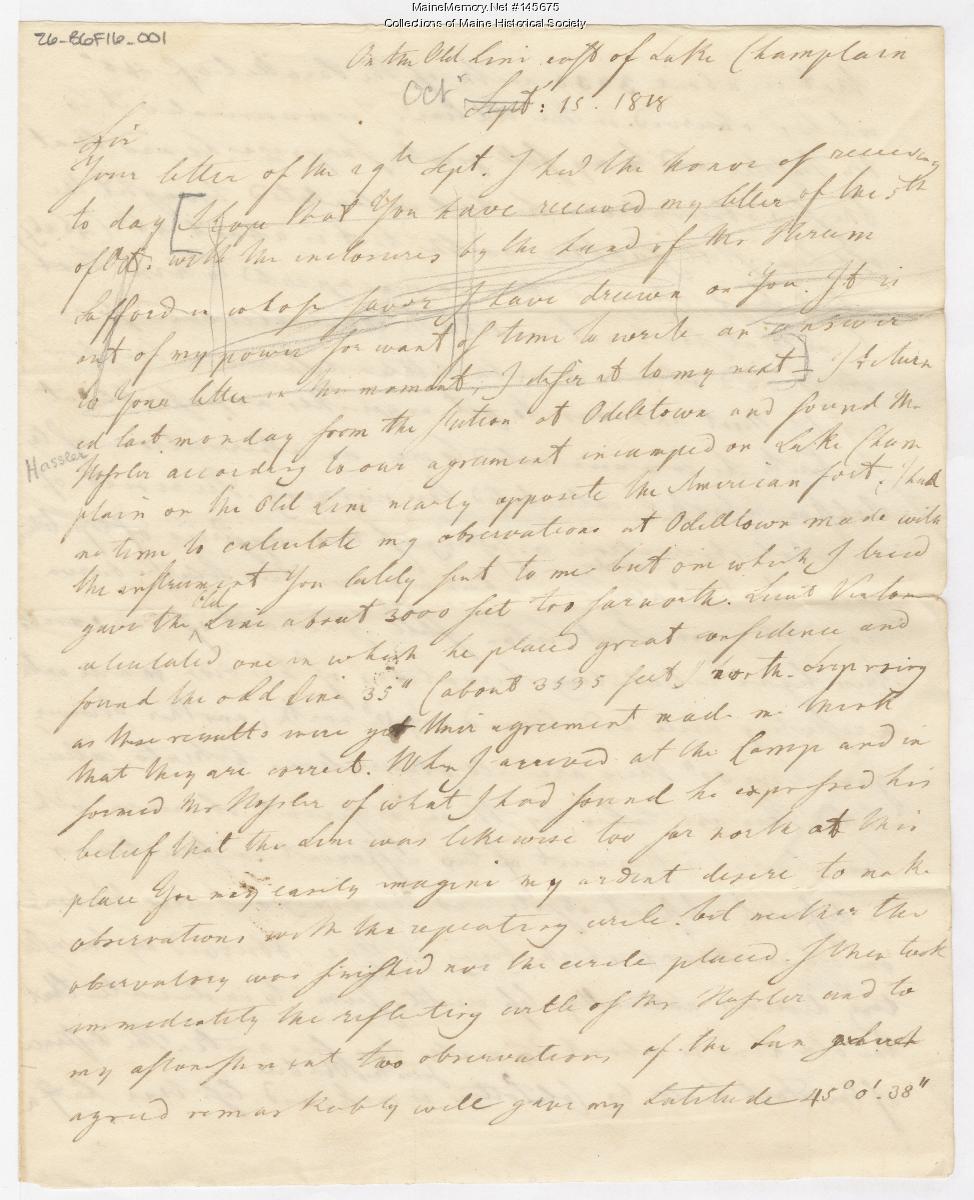 MaineMemory.Net #145675
Collections of Maine Historical Society
26-B6F16_001
On the Old Line east of Lake Champlain
Octr Sept: 15. 1818
Sir
Your letter of the 29th Sept. I had the honor of receiving
to day [I hope that You have received my letter of the 5th
of Oct. with the inclosures by the hand of Mr Hiram
Safford in whose favor I have drawn on You. It is
out of my power for want of time to write an answer
to Your letter in the moment, I defer it to my next] I return
ed last monday from the station at Odelltown and found Mr
Hassler
Hassler according to our agrement incamped on Lake Cham
plain on the Old Line nearly opposite the American fort. I had
no time to calculate my observations at Odelltown made with
the instrument You lately sent to me but one which I tried
gave the old Line about 3000 feet too far north. Lieut
calculated one in which he placed great confidence and
found the old line 35" (about 3535 feet) north. Surprising
as these results were yet their agreement made me think
that they are correct. When I arrived at the Camp and in
formed Mr Hassler of what I had found he expressed his
belief that the Line was likewise too far north at this
place You may easily imagine my ardent desire to make
observations with the repeating circle. but neither the
observatory was finished nor the circle placed. I then took
immediately the reflecting circle of Mr Hassler and to
my astonishment two observations of the Sun which
agreed remarkably well gave my Latitude 45° 0'. 38"